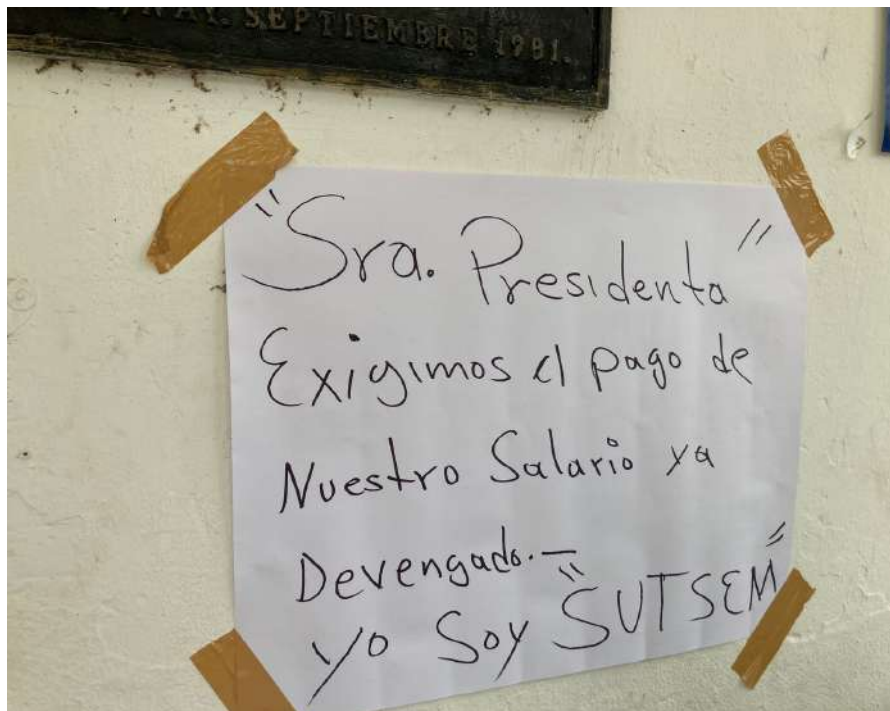 NAY. SEPTIEMBRE 1981.
"Sra. Presidenta"
Exigimos el pago de
Nuestro Salario ya
Devengado.—
Yo Soy "SUTSEM"